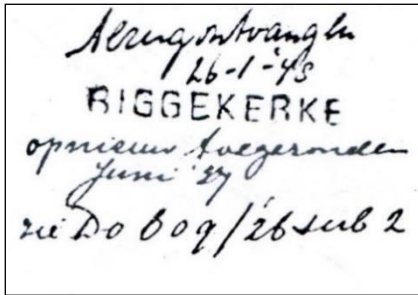 Terugontvangen
26-1-'48
BIGGEKERKE
opnieuw toegezonden
Juni '47
zie Do 609/26 sub 2